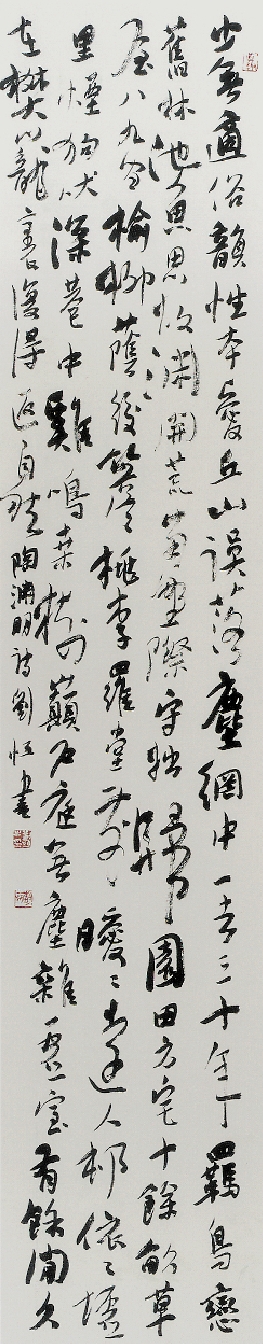 少無適俗韻性本愛丘山誤落塵網中一去三十年羈鳥戀
舊林池魚思故淵開荒南野際守拙歸園田方宅十餘畝草
屋八九間榆柳蔭後簷桃李羅堂前曖〻遠人邨依〻墟
里煙狗吠深巷中雞鳴桑樹巔戶庭無塵雜虛室有餘閒久
在樊籠裏復得返自然陶淵明詩劉恒書